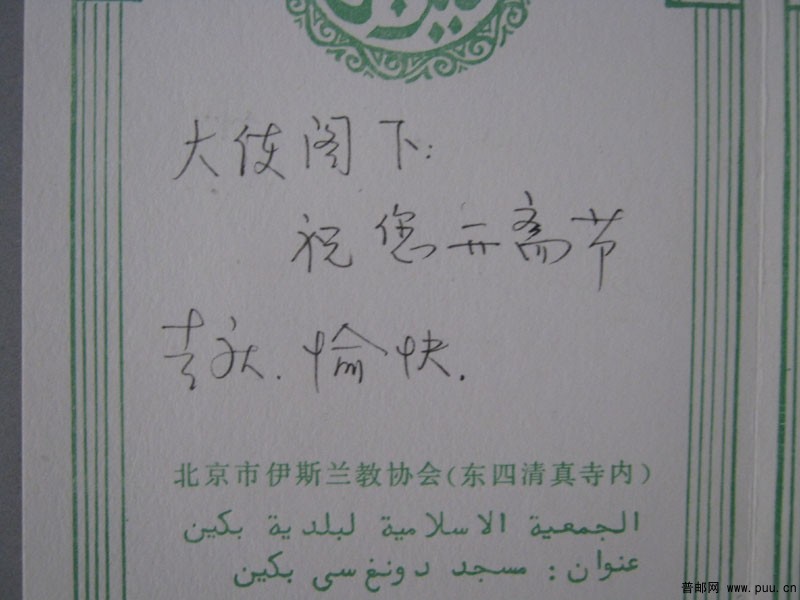 大使阁下:
祝您开斋节
吉庆.愉快.
北京市伊斯兰教协会(东四清真寺内)
الجمعية الاسلامية لبلدية بكين
عنوان : مسجد دونغ سى بكين
普邮网 www.puu.cn